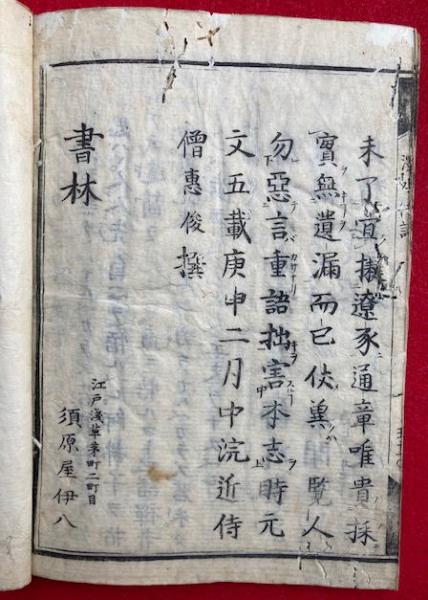 未了宜遼豕通章唯貴採
實無遺漏而已伏冀開覽人
勿惡言重語拙害本志時元
文五載庚申二月中浣近侍
僧惠俊撰
書林
江戸淺草茅町二町目
須原屋伊八